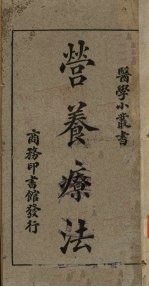 醫學小叢書
營養療法
商務印書館發行